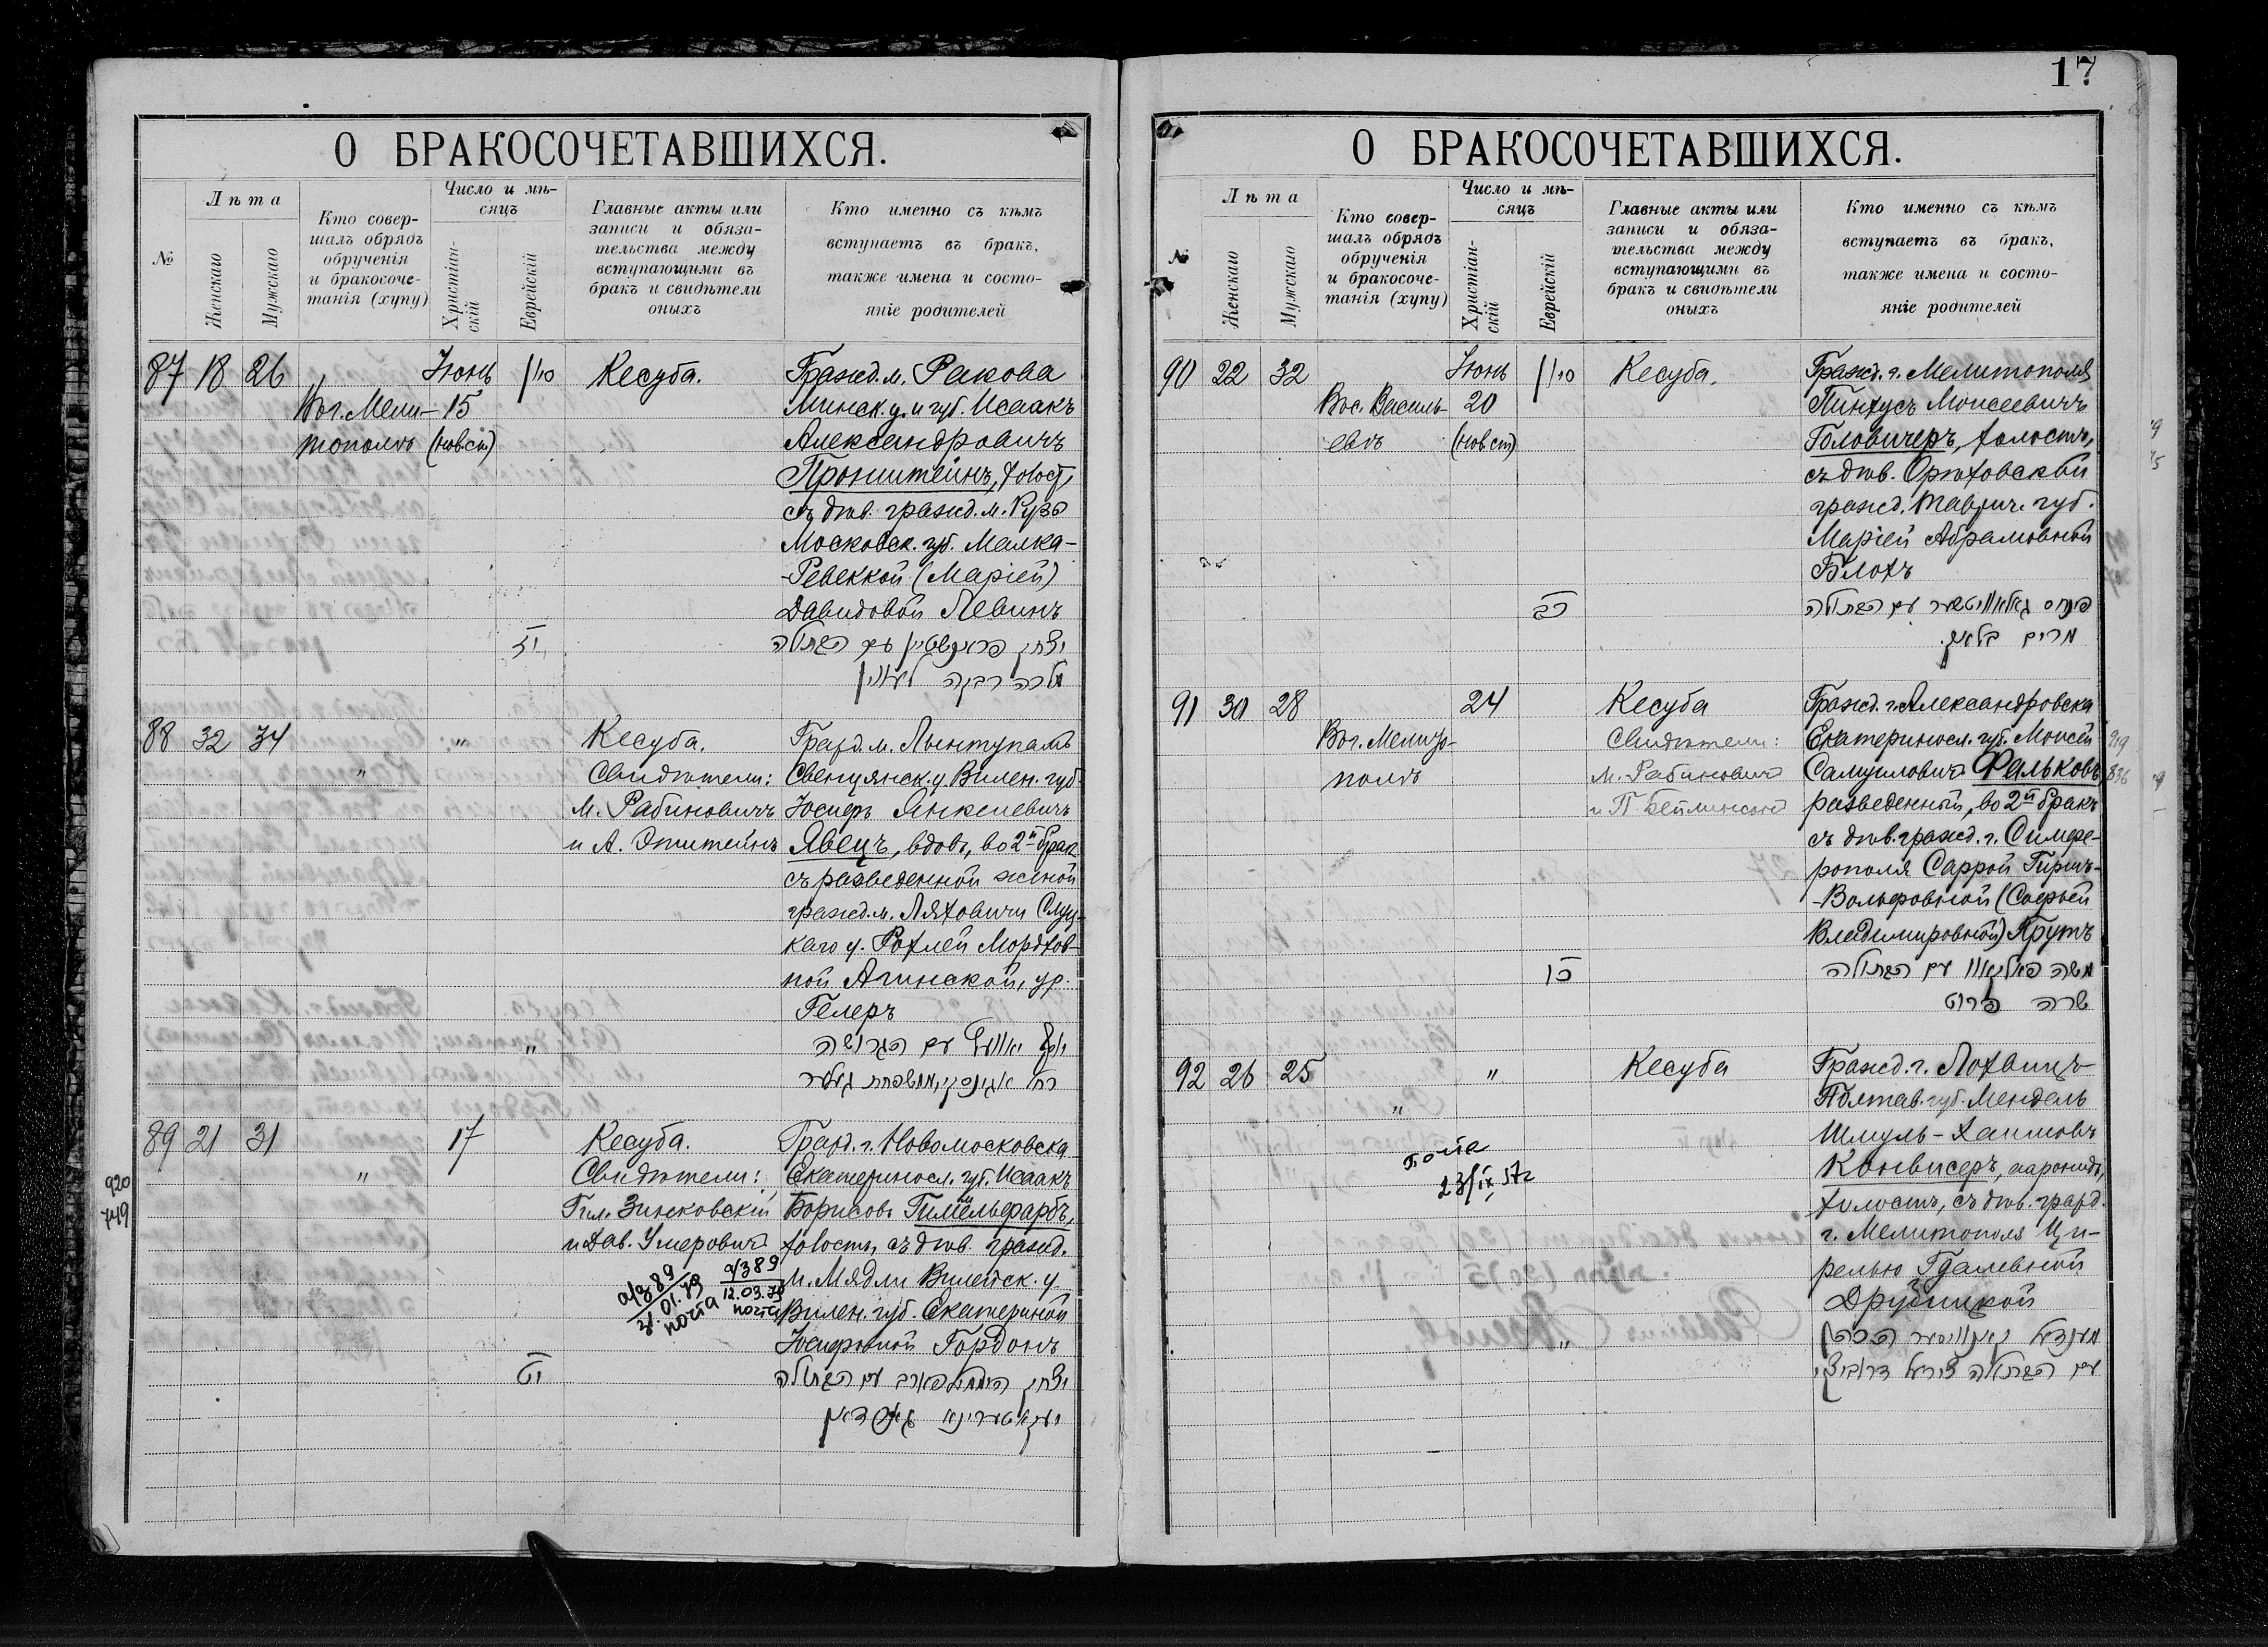 О БРАКОСОЧЕТАВШИХСЯ.
№
Лѣта
Женскаго
Мужскаго
Кто совер-
шалъ обрядъ
обрученія
и бракосоче-
танія (хупу)
Число и мѣ-
сяцъ
Христіан-
скій
Еврейскій
Главные акты или
записи и обяза-
тельства между
вступающими въ
бракъ и свидѣтели
оныхъ
Кто именно съ кѣмъ
вступаетъ въ бракъ,
также имена и состо-
яніе родителей
87 18 26
В г. Мели-
тополѣ
Іюнь
15
(нов ст)
Кесуба.
Гражд. м. Ракова
Минск. у. и губ. Исаакъ
Александровичъ
Пронштейнъ, холост,
съ дѣв. гражд. м. Руза
Московск. губ. Малка-
-Ревеккой (Маріей)
Давидовой Левинъ
יז
יצחק פראנשטיין עם הבתולה
מלכה רבקה לעווין
88 32 34
"
"
Кесуба.
Свидѣтели:
М. Рабиновичъ
и А. Эпштейнъ
Гражд. м. Лынтупамъ
Свенцянск. у. Вилен. губ.
Юсиръ Янкелевичъ
Явецъ, вдов, во 2й брак
съ разведенной женой
гражд. м. Ляховичи Слуц-
каго у. Рохлей Мордхов-
ной Агинской, ур.
Гелеръ
"
יוסף יאוועץ עם הגרושה
רחל אגינסקי, משפחת געלער
89 21 31
"
17
Кесуба.
Свидѣтели:
Гил. Зинковскій
и Дав. Умеровичъ
Гражд. г. Новомосковска
Екатеринос. губ. Исаакъ
Борисовъ Гимельфарбъ,
холостъ, съ дѣв. гражд.
м. Мядли Вилейск. у.
Вилен. губ. Екатериной
Юсифовной Гордонъ
920
749
а/з 89
31.01.79
почта
а/з 89
12.03.79
почта
יט
יצחק הימעלפארב עם הבתולה
יעקאטערינא גארדאן
17
О БРАКОСОЧЕТАВШИХСЯ.
№
Лѣта
Женскаго
Мужскаго
Кто совер-
шалъ обрядъ
обрученія
и бракосоче-
танія (хупу)
Число и мѣ-
сяцъ
Христіан-
скій
Еврейскій
Главные акты или
записи и обяза-
тельства между
вступающими въ
бракъ и свидѣтели
оныхъ
Кто именно съ кѣмъ
вступаетъ въ бракъ,
также имена и состо-
яніе родителей
90 22 32
В ос. Василь-
евѣ
Іюнь
20
(нов ст)
Кесуба.
Гражд. г. Мелитополя
Пинхусъ Моисеевичъ
Головичеръ, холостъ,
съ дѣв. Орѣховской
гражд. Таврич. губ.
Маріей Абрамовной
Блохъ
כב
פנחס גאלאוויטשער עם הבתולה
מרים בלאך.
91 30 28
В г. Мелито-
полѣ
24
Кесуба
Свидѣтели:
М. Рабиновичъ
и П. Бейлинсонъ
Гражд. г. Александровска
Екатеринос. губ. Моисей
Самуиловичъ Фальковъ,
разведенный, во 2й бракъ
съ дѣв. гражд. г. Симфе-
рополя Саррой Гиршъ-
-Вольфовной (Софьей
Владимировной) Прутъ
919
836
כו
משה פאלקאוו עם הבתולה
שרה פרוט
92 26 25
"
"
Кесуба
Гражд. г. Лохвицъ
Полтав. губ. Мендель
Шмуль-Хаимовъ
Конвисеръ, ааронидъ,
холостъ, съ дѣв. гражд.
г. Мелитополя Ци-
релью Гдалевной
Друбицкой
почта
23/IX 57г
"
מענדעל קאנוויסער הכהן
עם הבתולה צירעל דרוביצקי